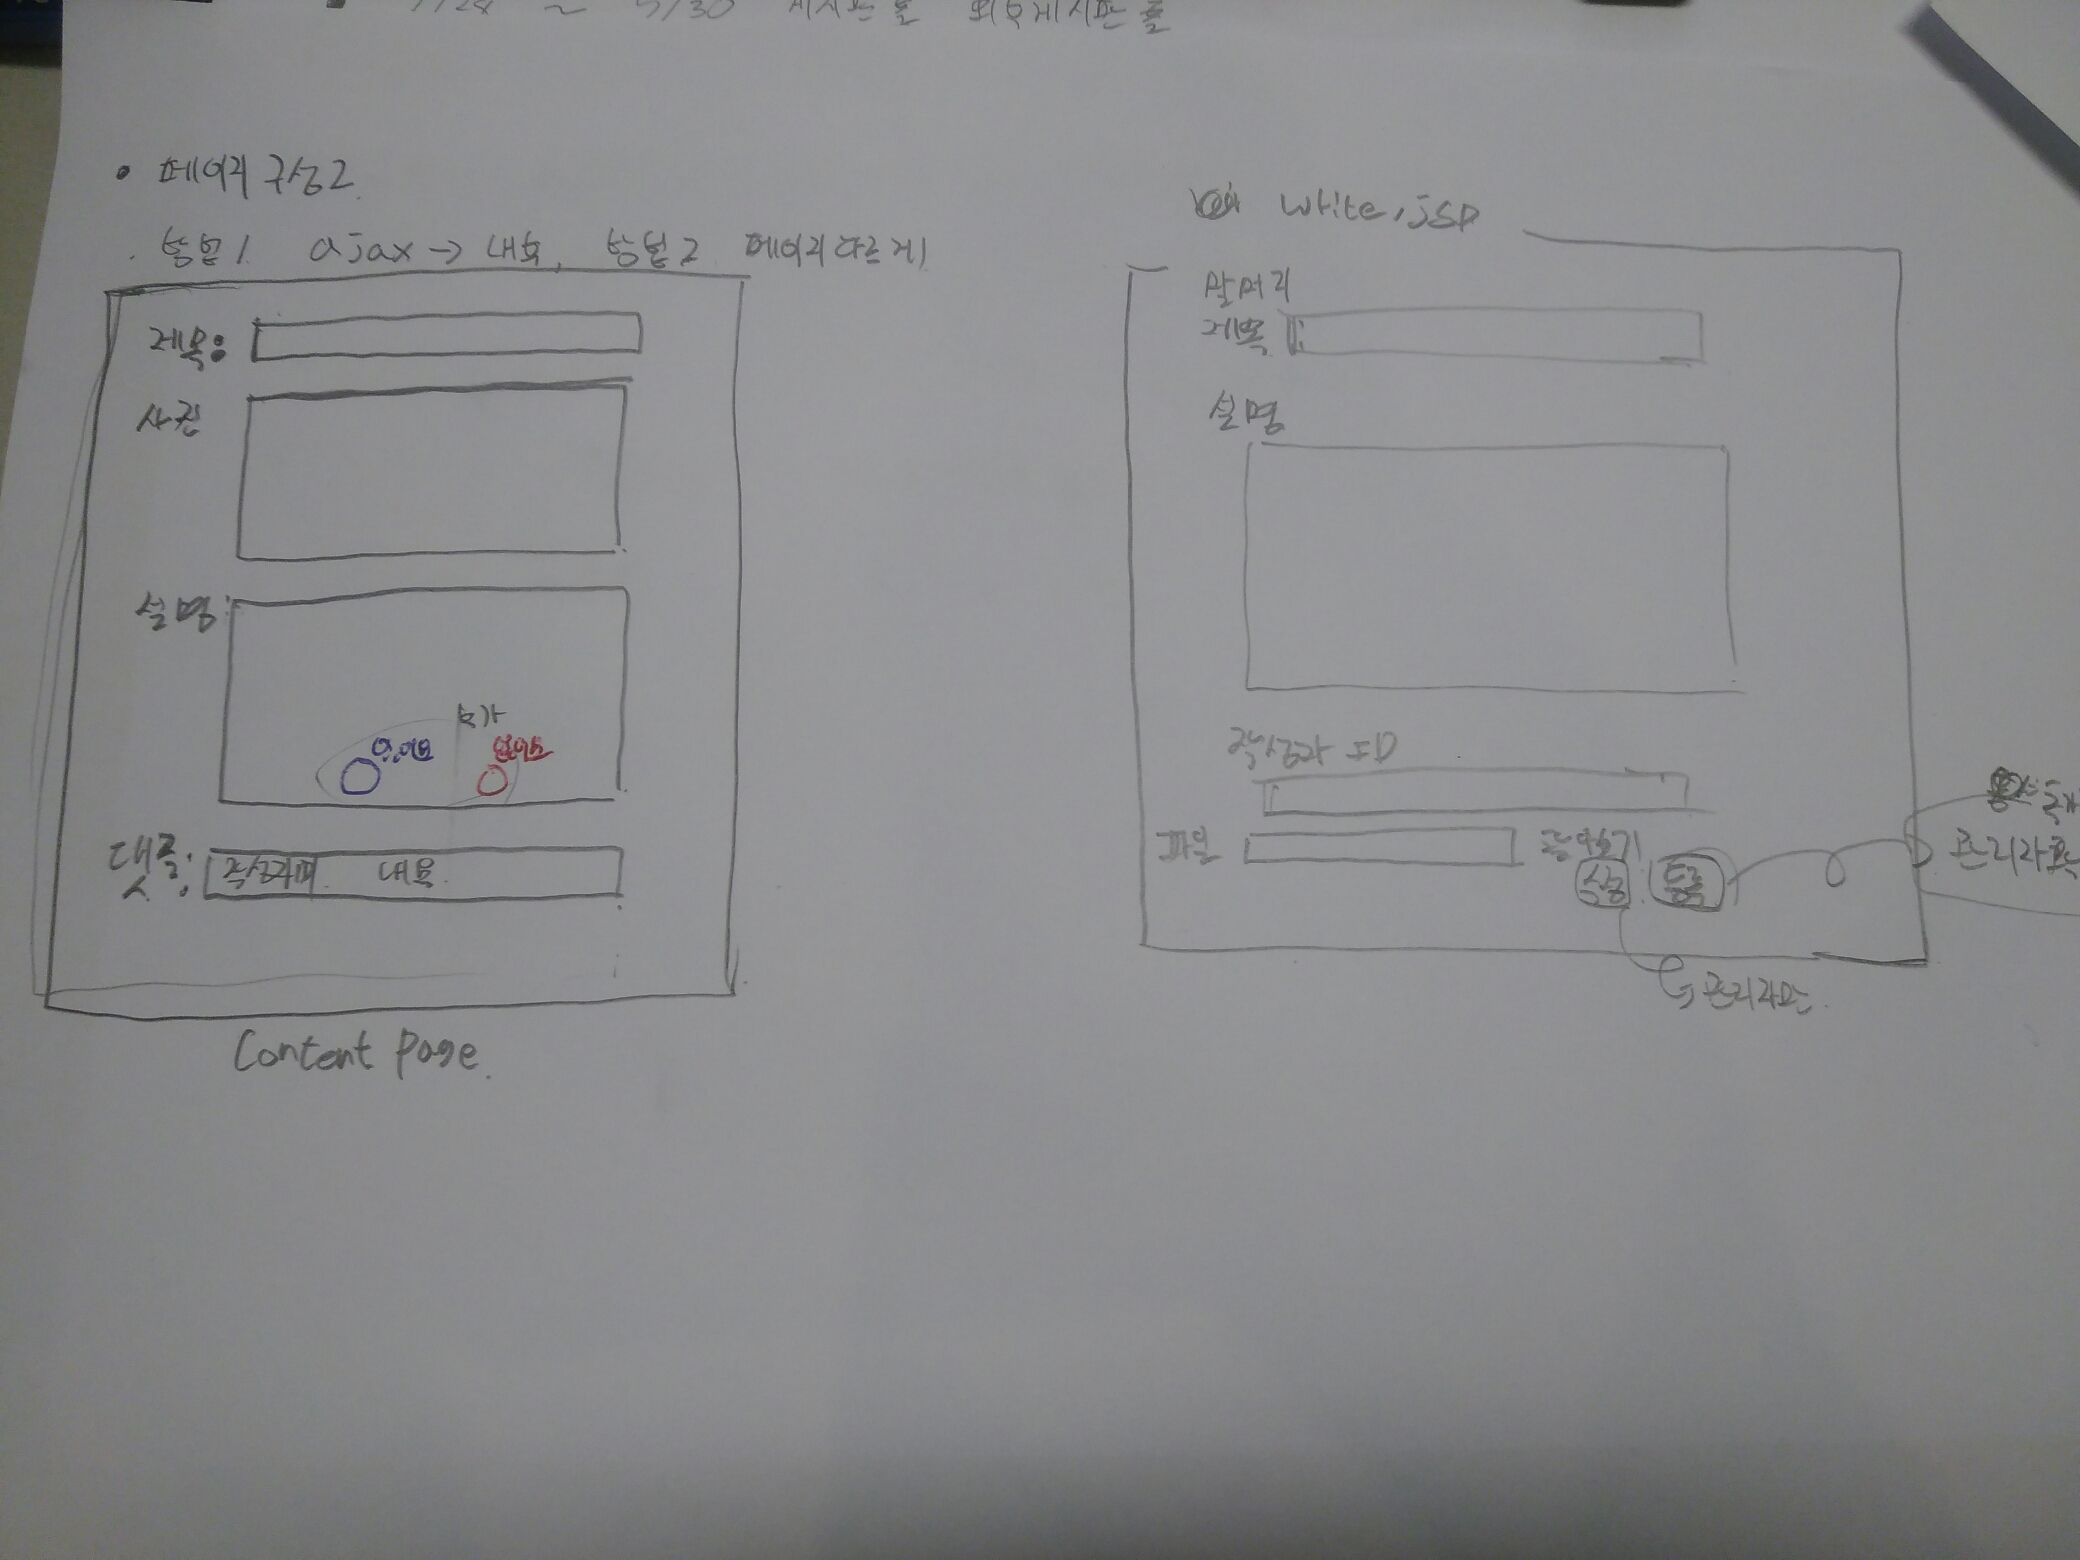 ~ 5/30 게시판 틀
• 페이지 구성 2.
. 방법 1. ajax → 내용, 방법 2 페이지 다르게
제목:
사진
설명:
추가
있어요 없어요
댓글: 작성자ID 내용.
Content Page.
write.jsp
말머리
제목
설명
작성자 ID
파일 찾아보기
등록
관리자
관리자만.